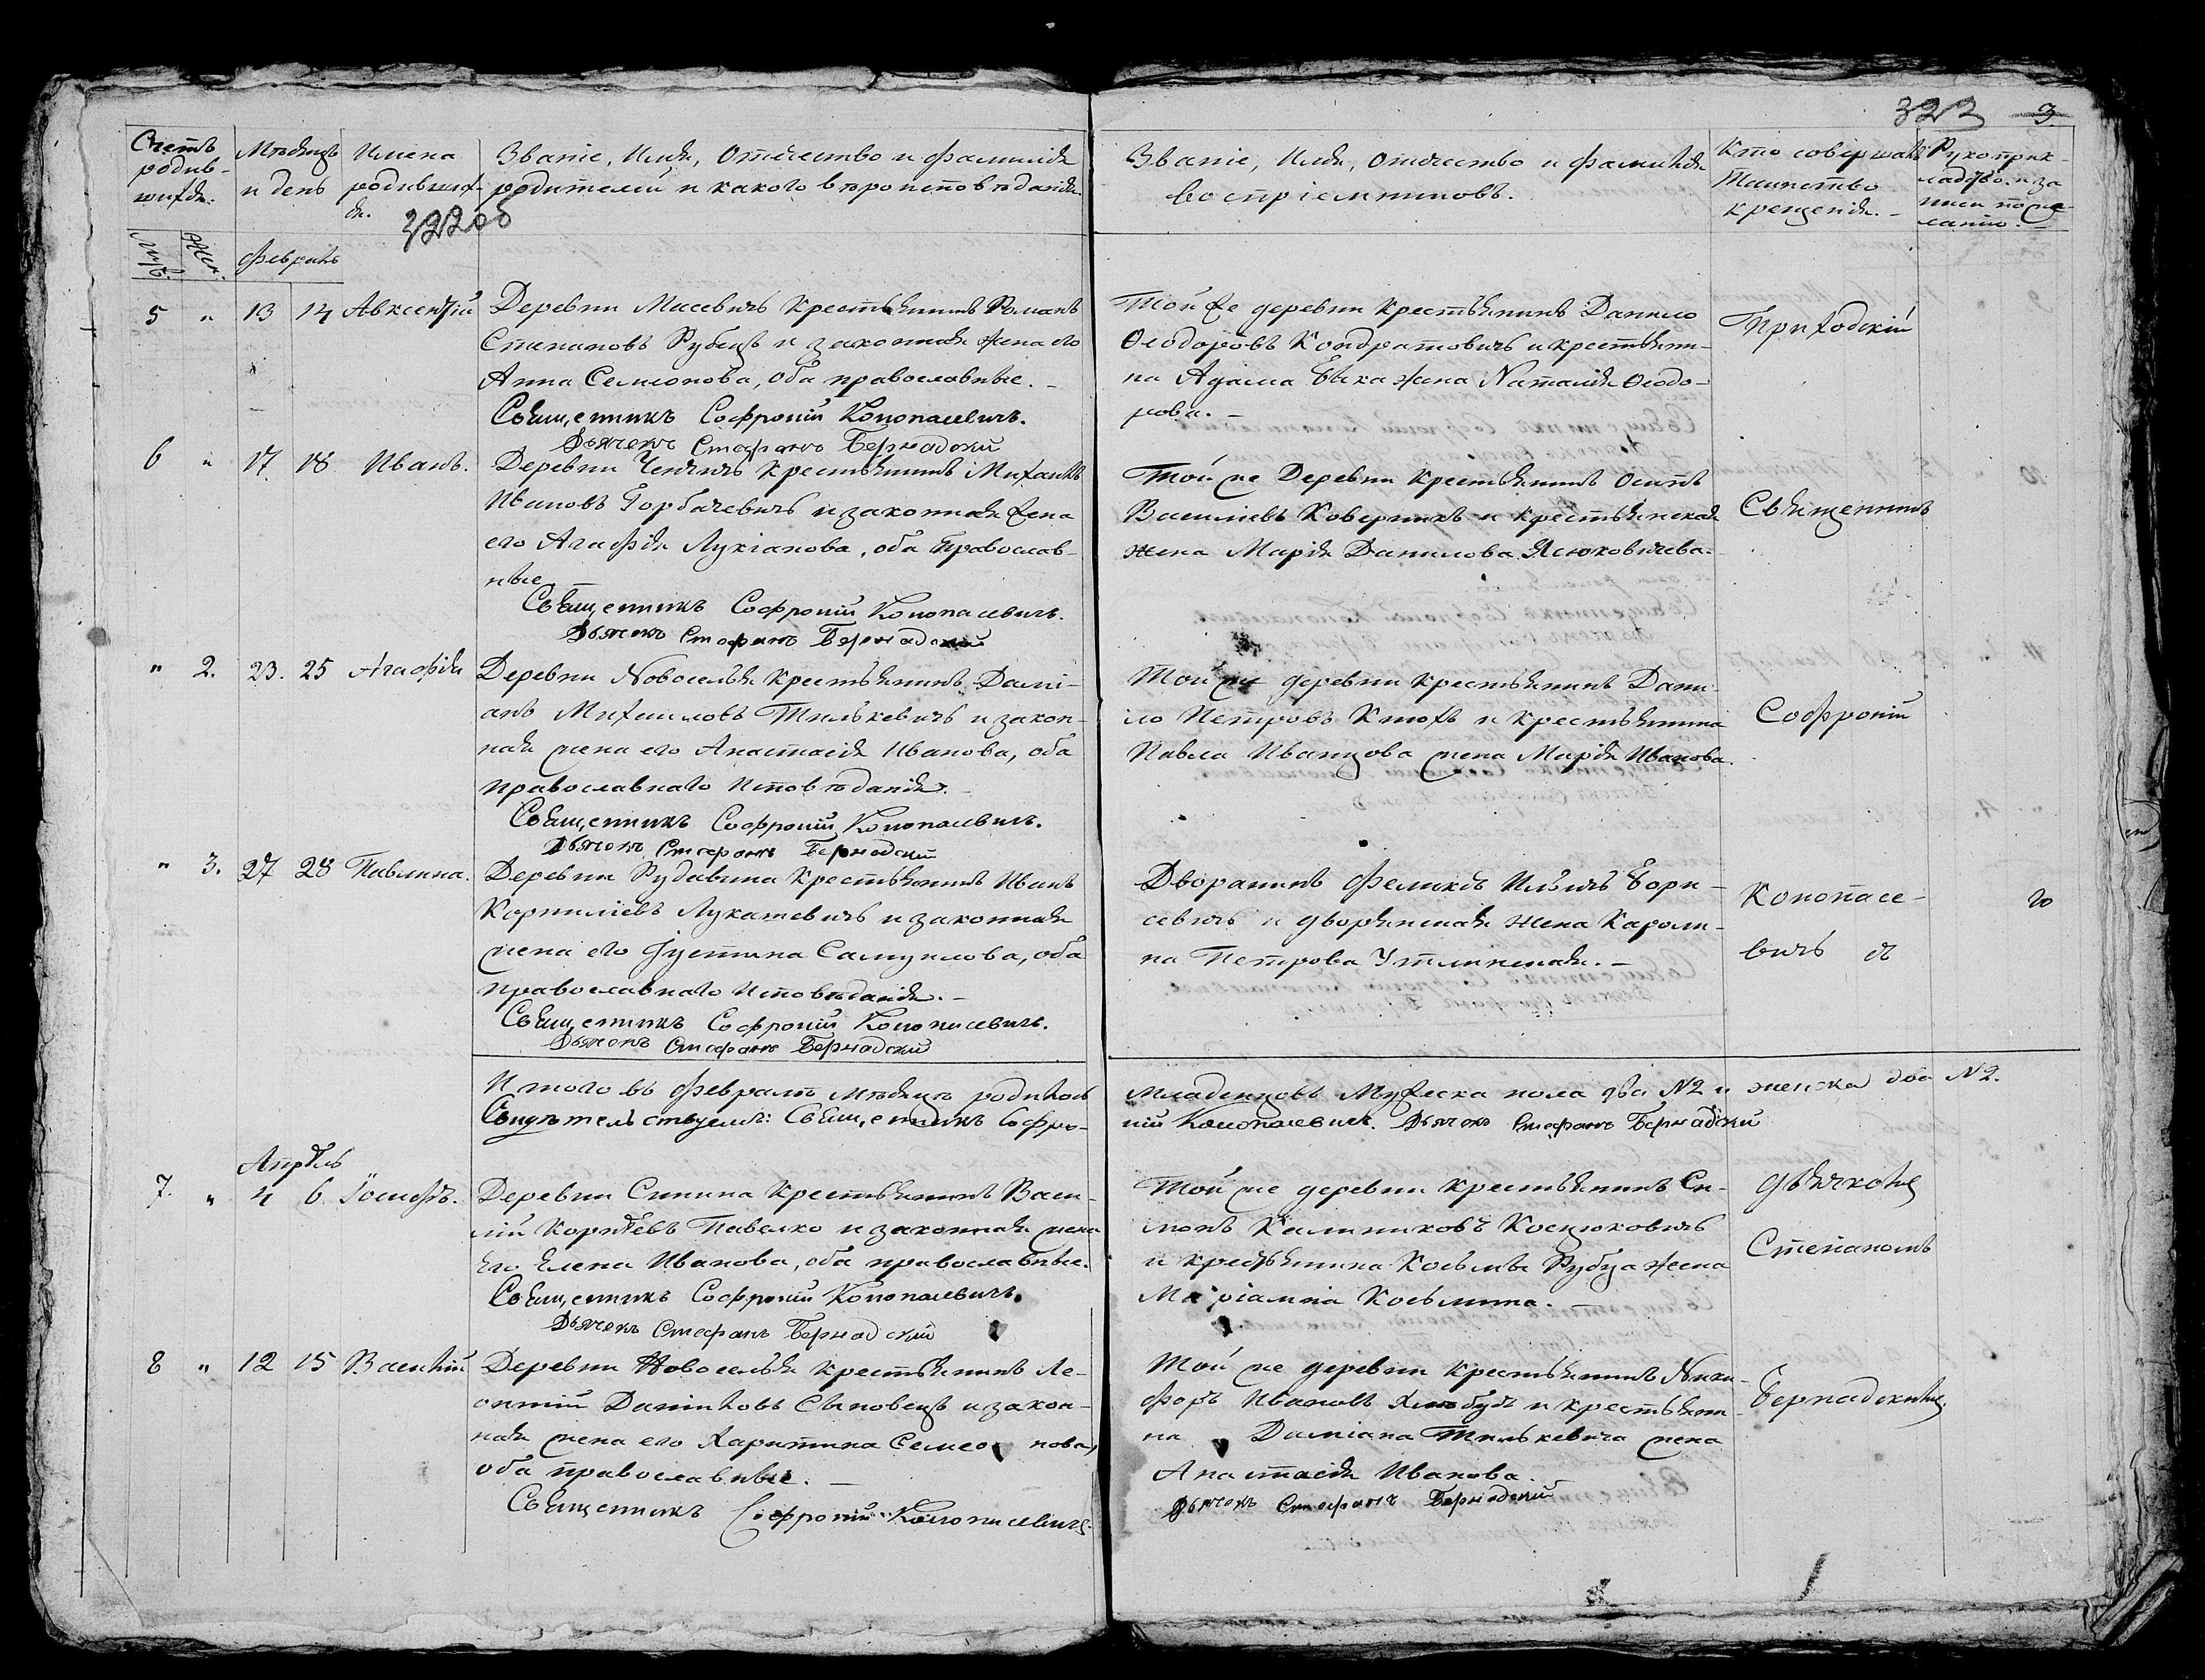 322 3
Счетъ родив-шихся.
Мѣсяцъ и день
Имена родивших-ся.
Званіе, Имя, Отчество и фамилія
родителей и какого вѣроисповѣданія.
322об
Муж. Жен.
Февраль
Званіе, Имя, Отчество и фамилія
воспріемниковъ.
Кто совершалъ
Таинство
крещенія.
Рукоприк-
ладство. за
писи по же-
ланію.
5 " 13 14 Авксентій
Деревни Масевичъ Крестьянинъ Романъ
Степановъ Рубецъ и законная жена его
Анна Семионова, оба православные.
Священникъ Софроній Конопасевичъ.
Дьячекъ Стефанъ Бернадскій
Той же деревни крестьянинъ Данило
Ѳеодоровъ Кондратовичъ и крестьяни-
на Адама Быка жена Наталія Ѳеодо-
рова.
Приходскій
6 " 17. 18 Иванъ.
Деревни крестьянинъ Михаилъ
Ивановъ Горбачевичъ и законная жена
его Агафія Лукіанова, оба Православ-
ные
Священникъ Софроній Конопасевичъ.
Дьячекъ Стефанъ Бернадскій
Той же Деревни Крестьянинъ Осипъ
Василіевъ Коверникъ и Крестьянская
жена Марія Данилова Ясюковичева.
Священникъ
" 2. 23. 25 Агафія
Деревни Новоселья Крестьянинъ Дамі-
анъ Михаиловъ Тилькевичъ и закон-
ная жена его Анастасія Иванова, оба
православнаго Исповѣданія.
Священникъ Софроній Конопасевичъ.
Дьячекъ Стефанъ Бернадскій
Той же деревни Крестьянинъ Дани-
ло Петровъ и крестьянина
Павла Иванцова жена Марія Иванова.
Софроній
" 3. 27 28 Павлина.
Деревни Рудавина Крестьянинъ Иванъ
Корниліевъ Лукашевичъ и законная
жена его Іустина Самуилова, оба
православнаго Исповѣданія.
Священникъ Софроній Конопасевичъ.
Дьячекъ Стефанъ Бернадскій
Дворанинъ Феликсъ Ильичъ Бори-
севичъ и дворянская жена Кароли-
на Петрова
Конопасе-
вичъ съ
Итого въ Февралѣ мѣсяцѣ родилось
младенцовъ Мужеска пола два №2 и женска два №2.
Свидѣтельствуемъ: Священникъ Софро-
ній Конопасевичъ. Дьячекъ Стефанъ Бернадскій
Апрѣль
7. " 4 6 Іосифъ.
Деревни Синина Крестьянинъ Васи-
лій Корнѣевъ Павелко и законная жена
его Елена Иванова, оба православные.
Священникъ Софроній Конопасевичъ.
Дьячекъ Стефанъ Бернадскій
Той же деревни крестьянинъ Си-
монъ Калиниковъ Косцюковичъ
и крестьянина Косьмы Рубца жена
Маріамна Косьмина.
дьячкомъ
Степаномъ
8 " 12 15 Василій
Деревни Новоселья крестьянинъ Ле-
онтій Даніиловъ Сыновецъ и закон-
ная жена его Харитина Семеонова,
оба православные.
Священникъ Софроній Конопасевичъ.
Той же деревни Крестьянинъ Ники-
форъ Ивановъ и крестьяни-
на Даміана Тилькевича жена
Анастасія Иванова.
Дьячекъ Стефанъ Бернадскій
Бернадскимъ.